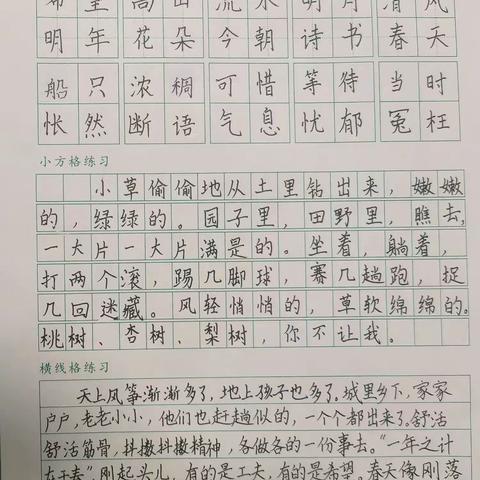 希望 高山 流水 明月 清风
明年 花朵 今朝 诗书 春天
船只 浓稠 可惜 等待 当时
怅然 断语 气息 忧郁 冤枉
小方格练习
小草偷偷地从土里钻出来，嫩嫩
的，绿绿的。园子里，田野里，瞧去，
一大片一大片满是的。坐着，躺着，
打两个滚，踢几脚球，赛几趟跑，捉
几回迷藏。风轻悄悄的，草软绵绵的。
桃树、杏树、梨树，你不让我。
横线格练习
天上风筝渐渐多了，地上孩子也多了。城里乡下，家家
户户，老老小小，他们也赶趟似的，一个个都出来了。舒活
舒活筋骨，抖擞抖擞精神，各做各的一份事去。“一年之计
在于春”，刚起头儿，有的是工夫，有的是希望。春天像刚落